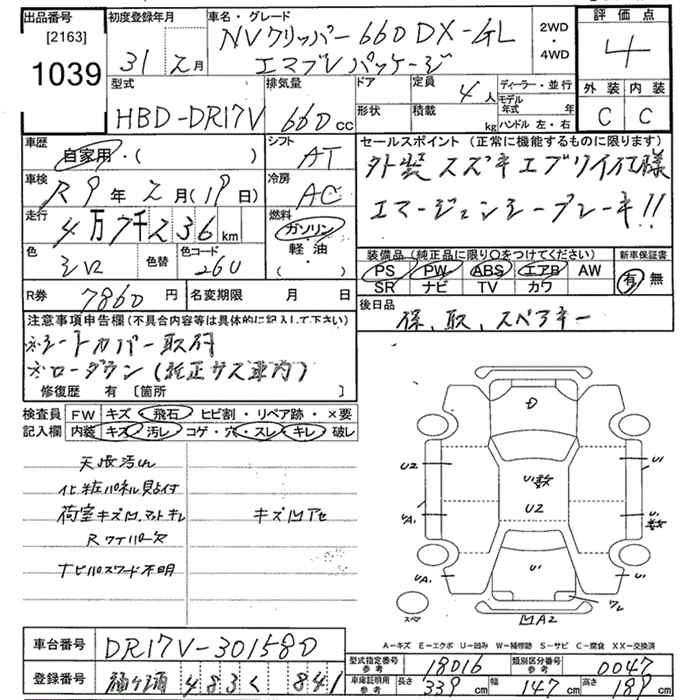 出品番号
[2163]
1039
初度登録年月
31 2月
車名・グレード
NVクリッパー 660 DX-GL
エマブレパッケージ
2WD
・
4WD
評価点
4
型式
HBD-DR17V
排気量
660 cc
ドア
形状
定員
4人
積載
kg
ディーラー・並行
モデル年式 年
ハンドル 左・右
外装 内装
C C
車歴
自家用・( )
シフト
AT
車検
R9年2月(19日)
冷房
AC
走行
4万7千236km
燃料
ガソリン
軽・油
( )
色
シロ
色替
色コード
26U
R券
7860円
名変期限 月 日
セールスポイント (正常に機能するものに限ります)
外装 スズキ エブリイ仕様
エマージェンシーブレーキ!!
装備品 (純正品に限り○をつけてください)
PS PW ABS エアB AW
SR ナビ TV カワ
新車保証書
有 無
後日品
保、取、スペアキー
注意事項申告欄 (不具合内容等は具体的に記入して下さい)
※シートカバー取付
※ローダウン (純正サス車内)
修復歴 有 [箇所 ]
検査員
記入欄
FW キズ 飛石 ヒビ割・リペア跡・×要
内装 キズ 汚レ コゲ・穴・スレ キレ 破レ
天張汚レ
化粧パネル貼付
荷室キズ凹、マットキレ
キズ凹アセ
Rワイパー欠
ナビパスワード不明
U2
U1
U1数
U2
UA1
U1
数
UA1
U1
WL
スペア
凹A2
A-キズ E-エクボ U-凹み W-補修跡 S-サビ C-腐食 XX-交換済
車台番号
DR17V-301580
登録番号
483 く 841
型式指定番号
参考
19016
類別区分番号
参考
0047
車庫証明用
参考
長さ 339 cm
幅 147 cm
高さ 189 cm